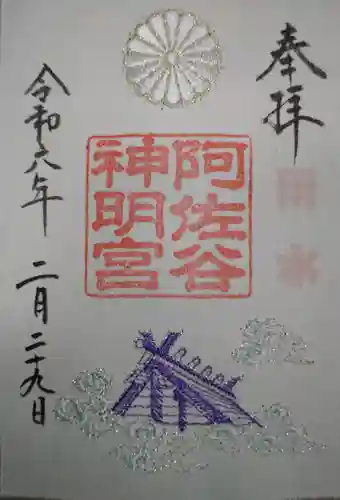 奉拝
雨水
阿佐谷
神明宮
令和六年 二月二十九日